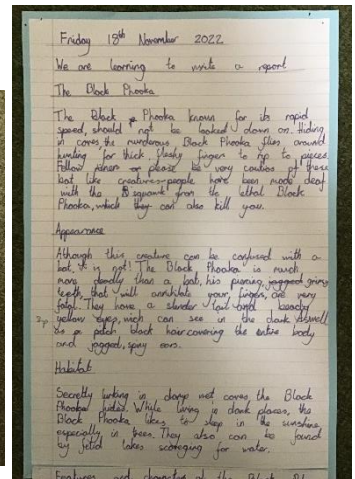 Friday 18th November 2022
We are learning to write a report
The Black Phooka
The Black Phooka known for its rapid
speed, should not be looked down on. Hiding
in caves, the murderous Black Phooka flies around
hunting for thick, fleshy fingers to rip to pieces.
Fellow miners please be very cautious of these
bat like creature-people have been made deaf
with the squawk from the lethal Black
Phooka, which they can also kill you.
Appearance
Although this creature can be confused with a
bat, is not! The Black Phooka is much
more deadly than a bat, his piercing, jagged grimy
teeth, that will annihilate your fingers, are very
fatal. They have a slender tail and beady
yellow eyes, wich can see in the dark aswell
as a pitch black hair covering the entire body
and jagged, spiny ears.
Habitat
Secretly lurking in damp wet caves, the Black
Phooka hides. While living in dark places, the
Black Phooka likes to sleep in the sunshine
especially in trees. They also can be found
by fetid lakes scavenging for water.
Features and of the Black